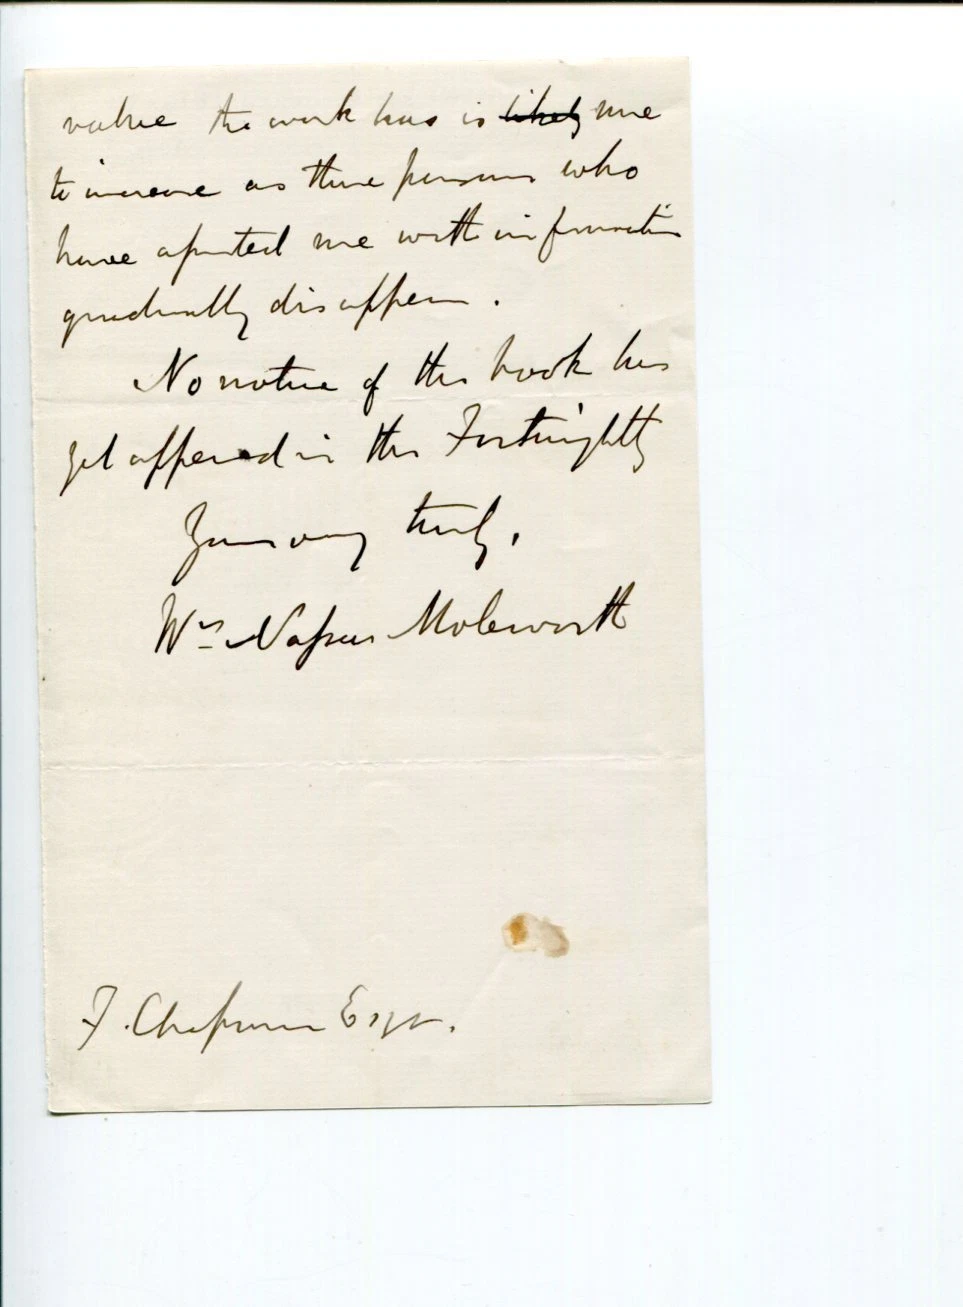 value the work has is ~~likely~~ sure
to increase as those persons who
have assisted me with information
gradually disappear.
No notice of the book has
yet appeared in the Fortnightly
Yours very truly,
Wm Nassau Molesworth
F. Chapman Esqr.